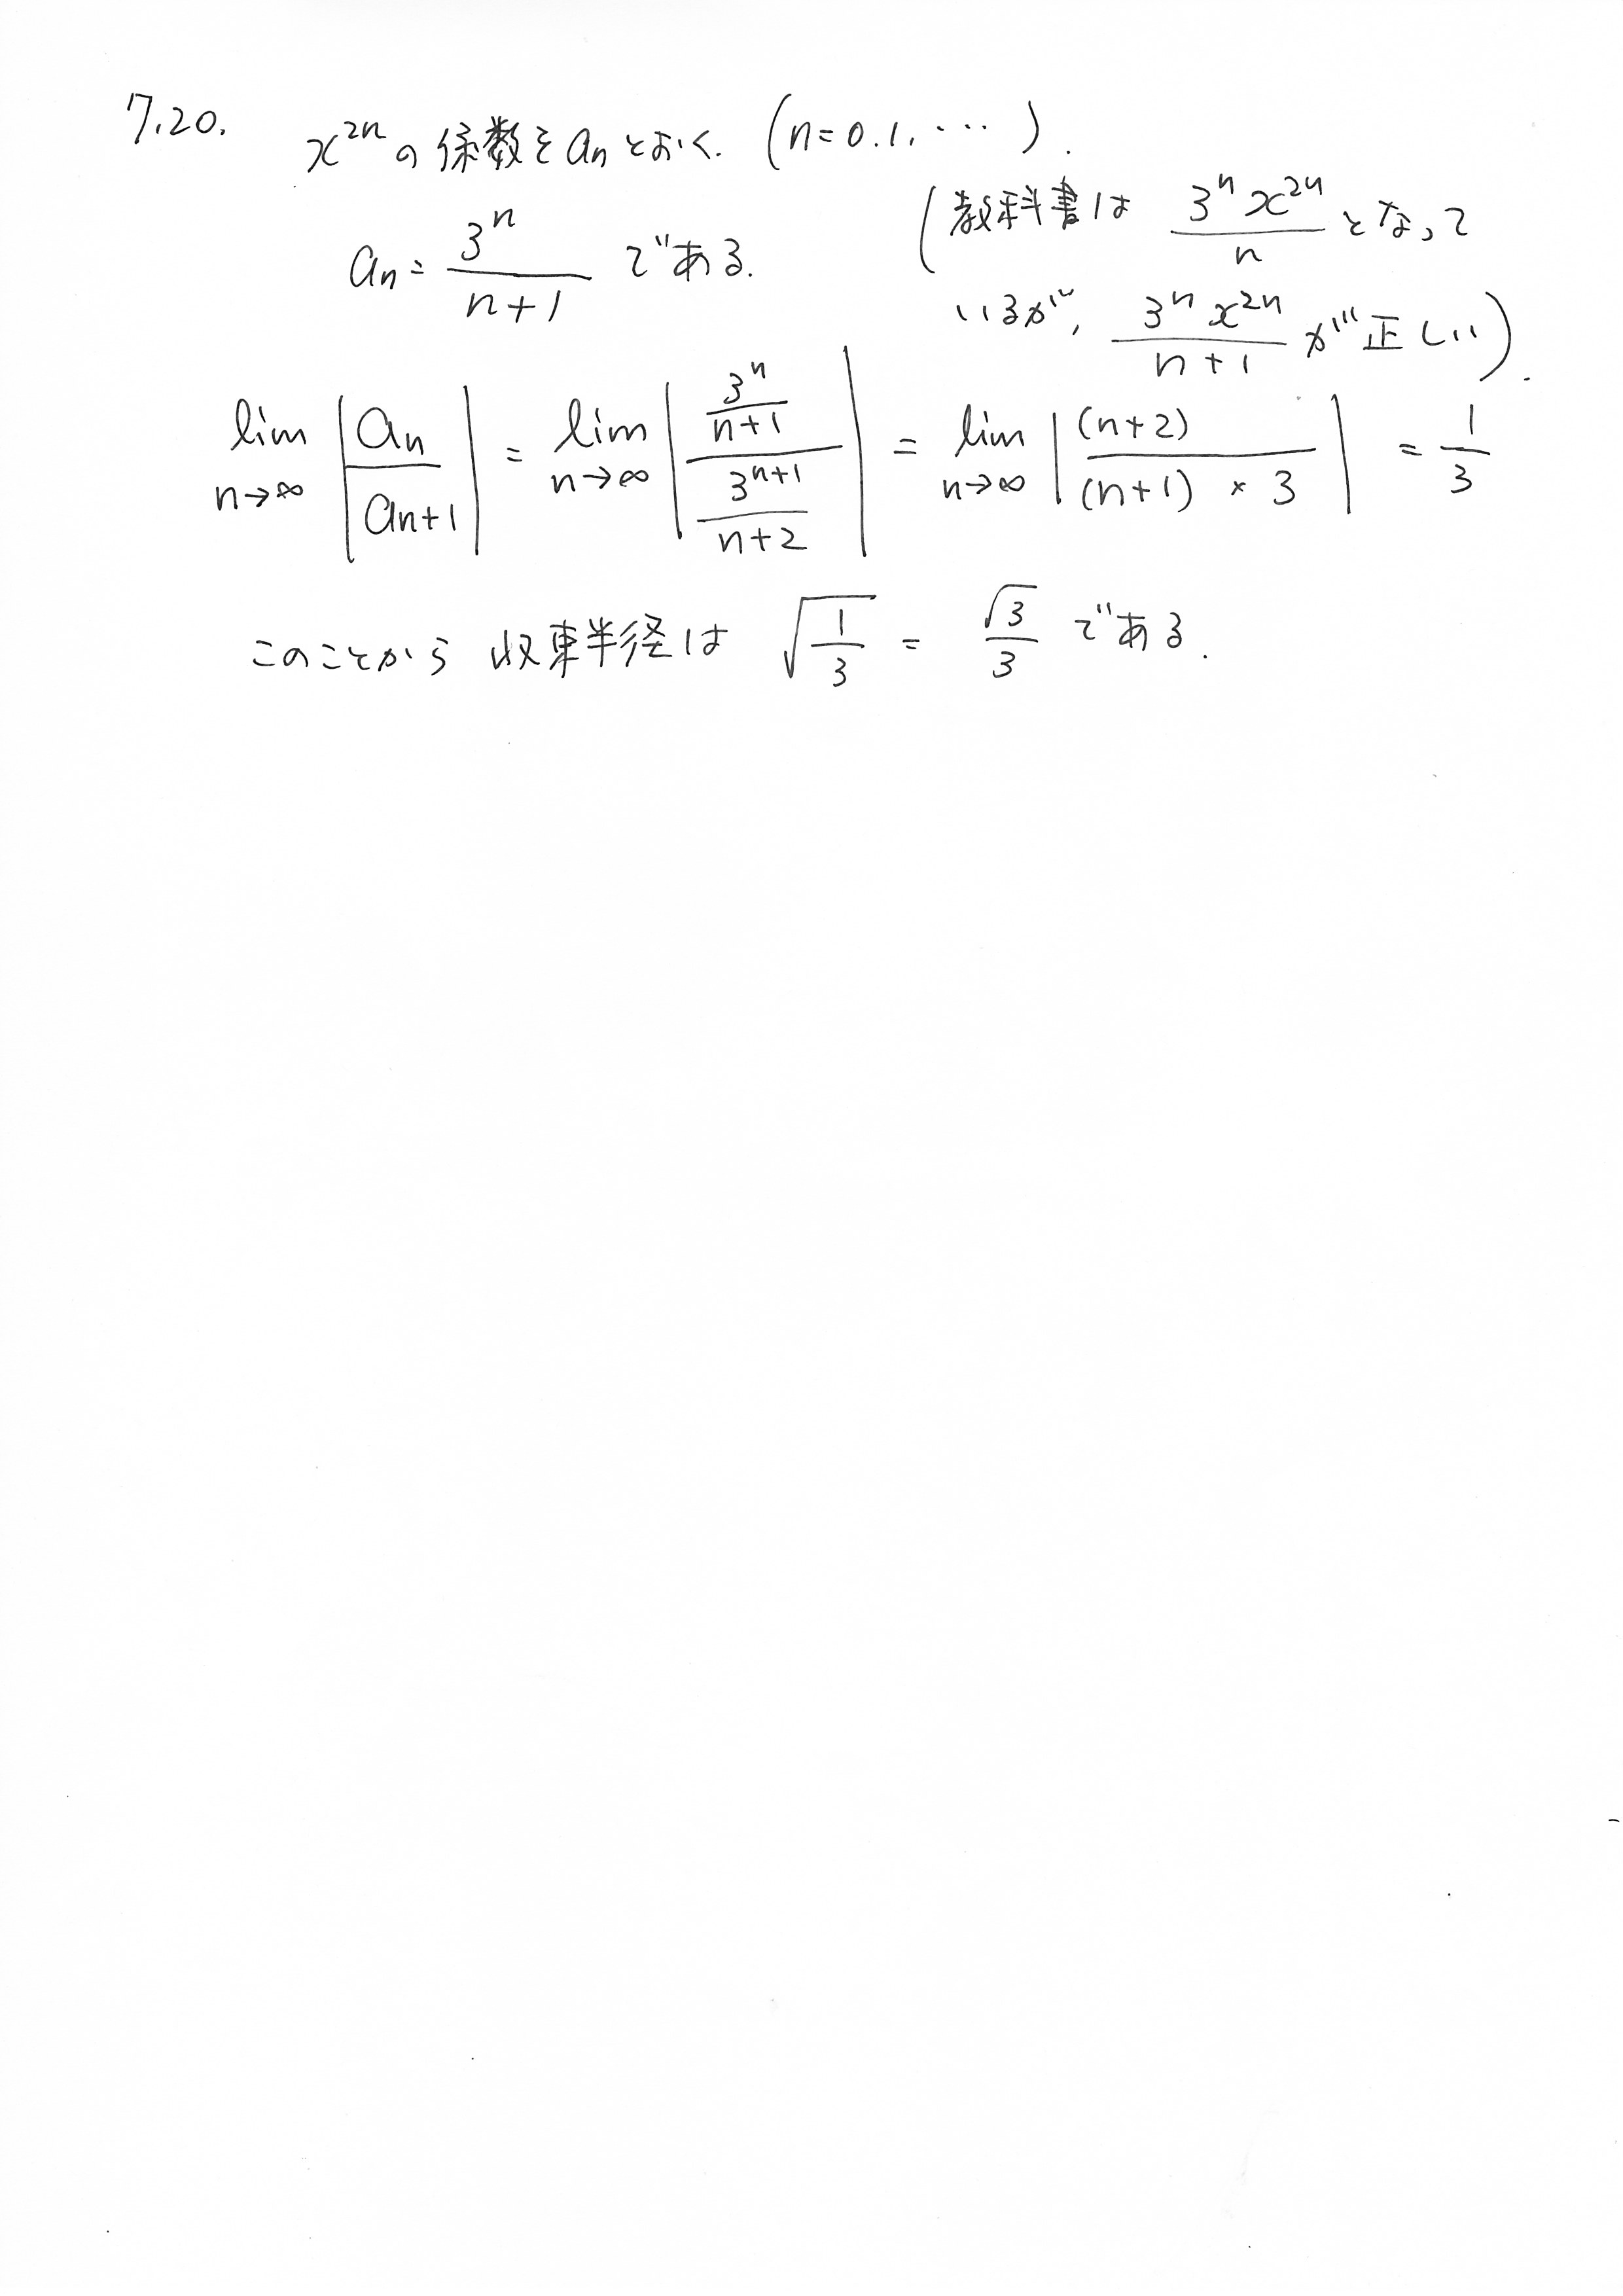 7.20. x^{2n} の係数を a_n とおく. (n=0.1.…).
a_n = \frac{3^n}{n+1} である. (教科書は \frac{3^n x^{2n}}{n} となって
いるが, \frac{3^n x^{2n}}{n+1} が正しい).
\lim_{n→∞} |\frac{a_n}{a_{n+1}}| = \lim_{n→∞} |\frac{\frac{3^n}{n+1}}{\frac{3^{n+1}}{n+2}}| = \lim_{n→∞} |\frac{(n+2)}{(n+1) × 3}| = \frac{1}{3}
このことから 収束半径は \sqrt{\frac{1}{3}} = \frac{\sqrt{3}}{3} である.